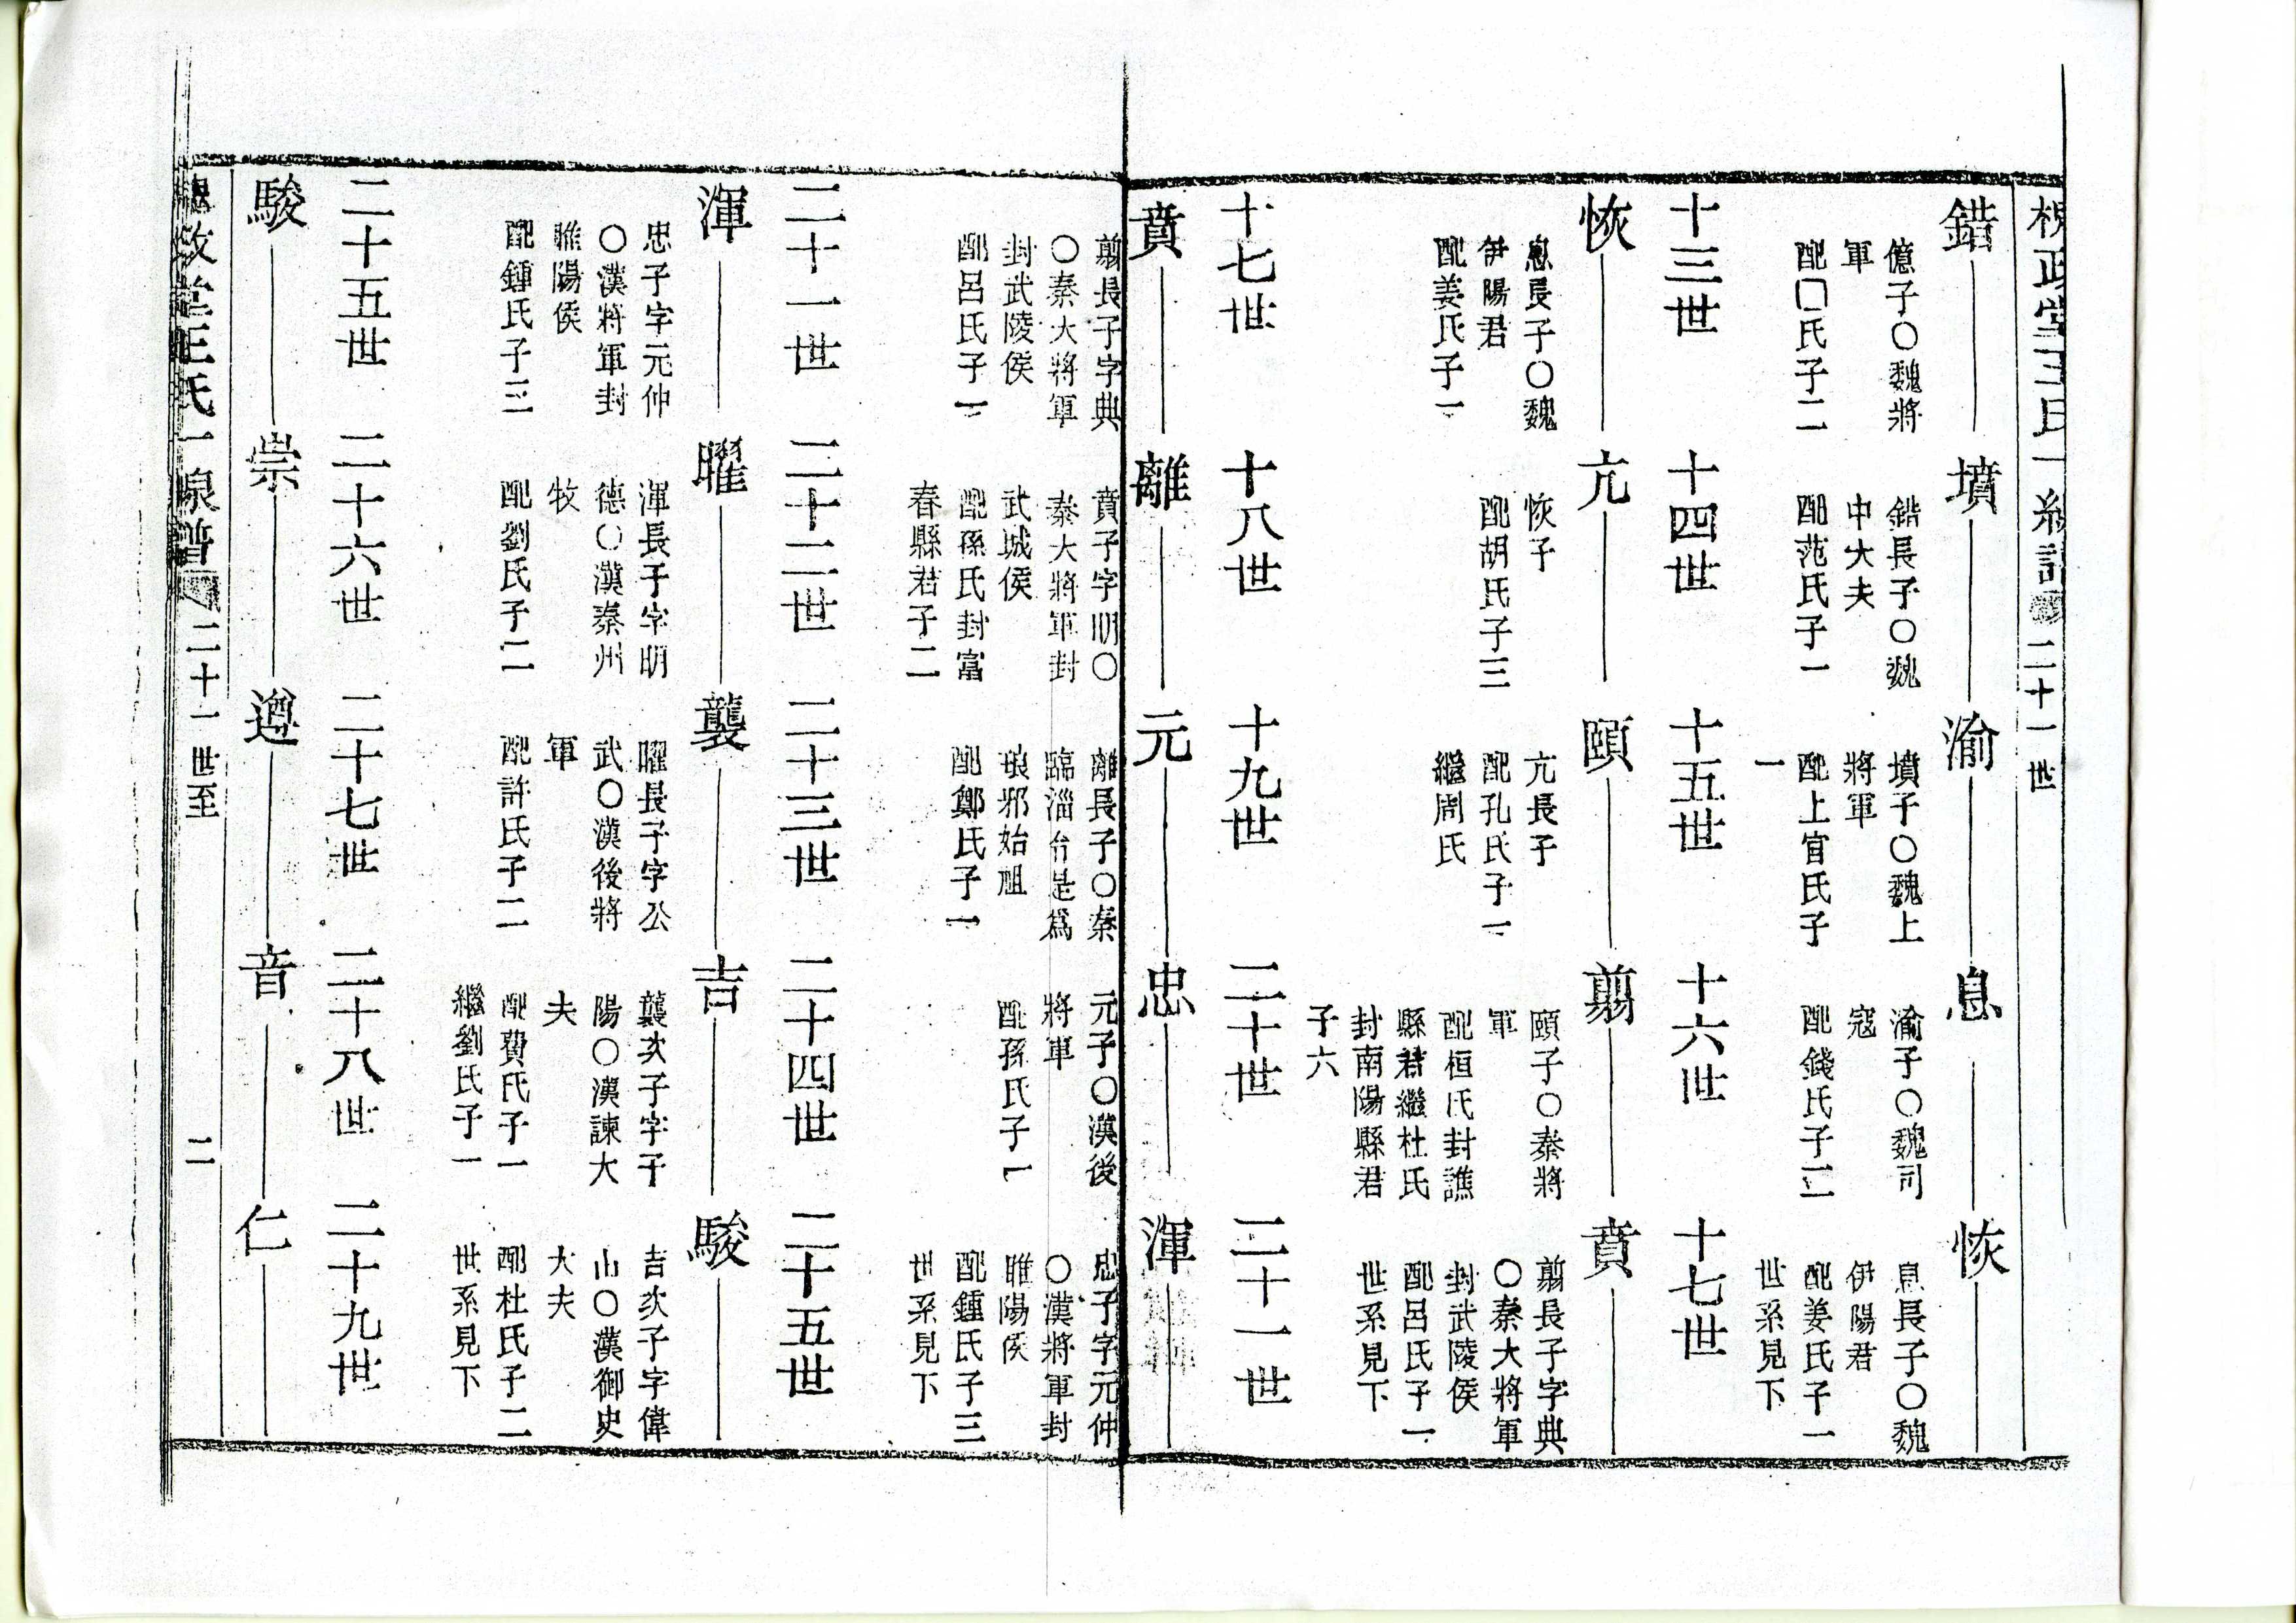 槐政堂王氏一線譜
二十一世
錯
億子○魏將
軍
配口氏子二
墳
錯長子○魏
中大夫
配范氏子一
渝
墳子○魏上
將軍
配上官氏子
一
息
渝子○魏司
寇
配錢氏子二
恢
息長子○魏
伊陽君
配姜氏子一
世系見下
十三世
十四世
十五世
十六世
十七世
恢
息長子○魏
伊陽君
配姜氏子一
亢
恢子
配胡氏子三
頤
亢長子
配孔氏子一
繼周氏
翦
頤子○秦將
軍
配桓氏封譙
縣君繼杜氏
封南陽縣君
子六
賁
翦長子字典
○秦大將軍
封武陵侯
配呂氏子一
世系見下
十七世
十八世
十九世
二十世
二十一世
賁
翦長子字典
○秦大將軍
封武陵侯
配呂氏子一
離
賁子字明○
秦大將軍封
武城侯
配孫氏封富
春縣君子二
元
離長子○秦
臨淄台是爲
琅邪始祖
配鄭氏子一
忠
元子○漢後
將軍
配孫氏子一
渾
忠子字元仲
○漢將軍封
睢陽侯
配鍾氏子三
世系見下
二十一世
二十二世
二十三世
二十四世
二十五世
渾
忠子字元仲
○漢將軍封
睢陽侯
配鍾氏子三
曜
渾長子字明
德○漢秦州
牧
配劉氏子二
襲
曜長子字公
武○漢後將
軍
配許氏子二
吉
襲次子字子
陽○漢諫大
夫
配費氏子一
繼劉氏子一
駿
吉次子字偉
山○漢御史
大夫
配杜氏子二
世系見下
二十五世
二十六世
二十七世
二十八世
二十九世
駿
崇
遵
音
仁
政堂王氏一線譜
二十一世至
二